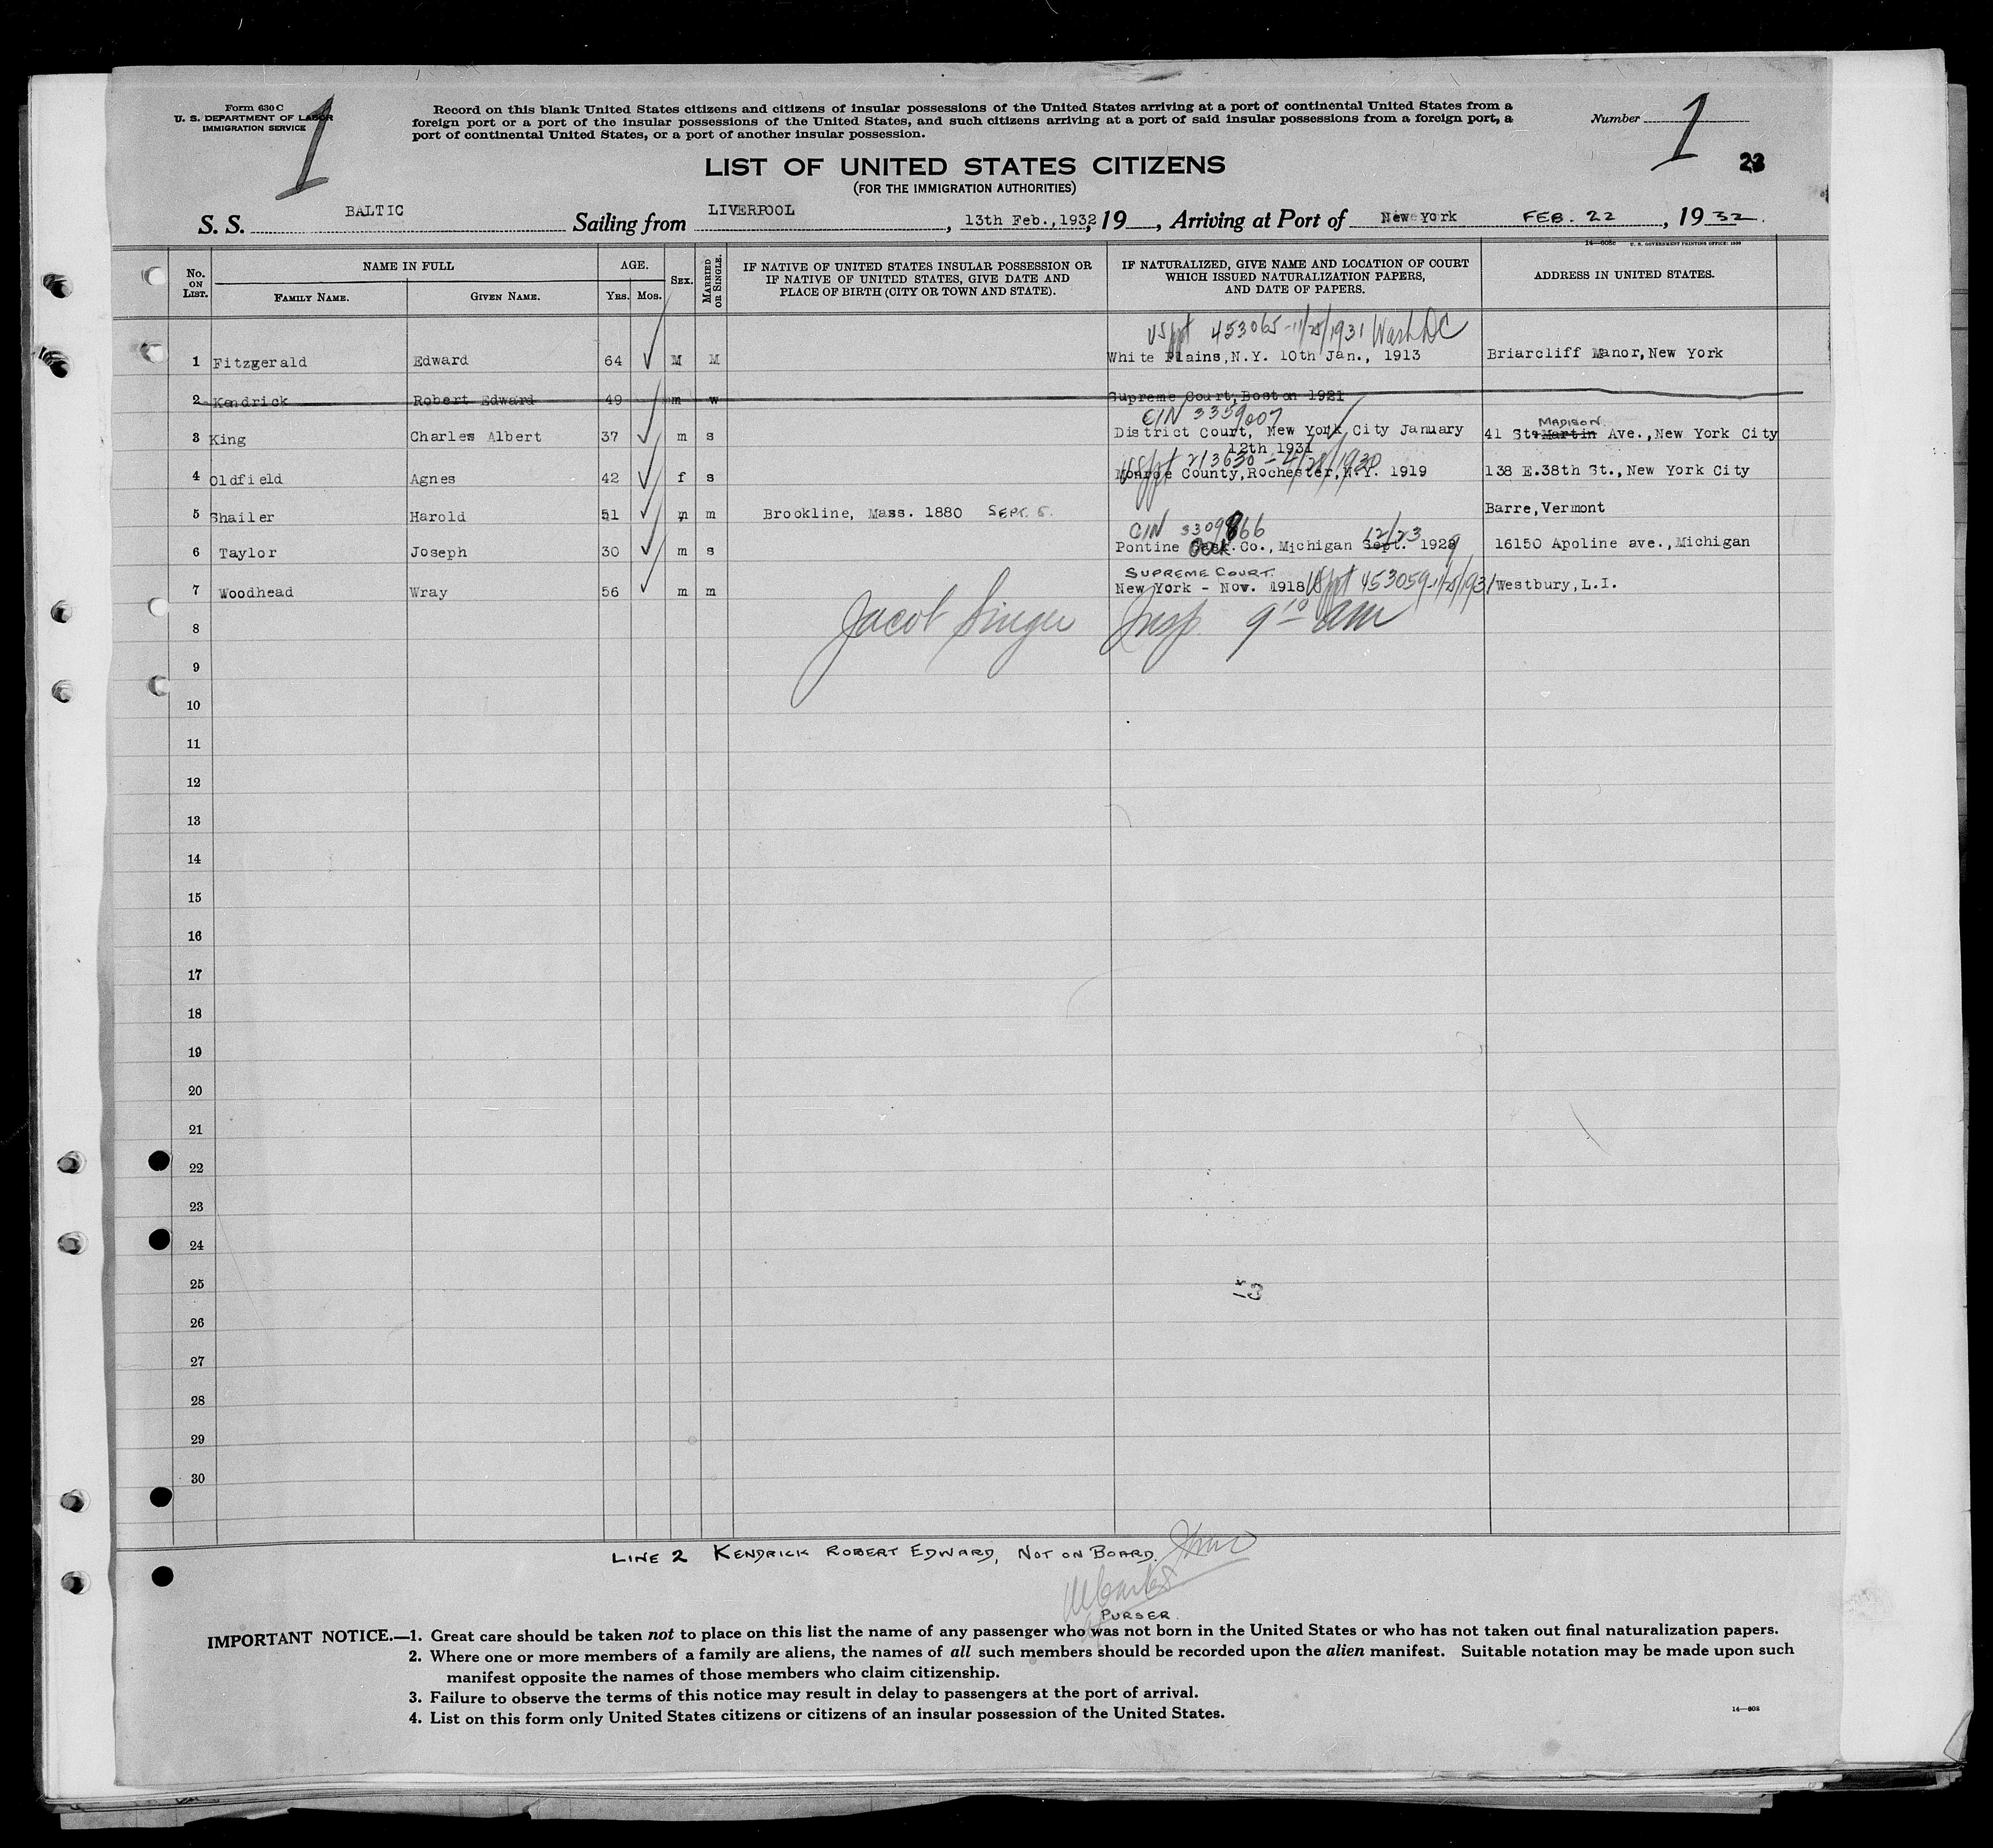 Form 630 C
U. S. DEPARTMENT OF LABOR
IMMIGRATION SERVICE
1
Record on this blank United States citizens and citizens of insular possessions of the United States arriving at a port of continental United States from a
foreign port or a port of the insular possessions of the United States, and such citizens arriving at a port of said insular possessions from a foreign port, a
port of continental United States, or a port of another insular possession.
Number 1
23
LIST OF UNITED STATES CITIZENS
(FOR THE IMMIGRATION AUTHORITIES)
S. S. BALTIC Sailing from LIVERPOOL, 13th Feb.,1932, 19 , Arriving at Port of New York FEB. 22, 19 32.
14—608c U. S. GOVERNMENT PRINTING OFFICE: 1930
No. ON LIST. NAME IN FULL FAMILY NAME. GIVEN NAME. AGE. YRS. MOS. SEX. MARRIED OR SINGLE. IF NATIVE OF UNITED STATES INSULAR POSSESSION OR IF NATIVE OF UNITED STATES, GIVE DATE AND PLACE OF BIRTH (CITY OR TOWN AND STATE). IF NATURALIZED, GIVE NAME AND LOCATION OF COURT WHICH ISSUED NATURALIZATION PAPERS, AND DATE OF PAPERS. ADDRESS IN UNITED STATES.
US ppt 453065-11/25/1931 Wash DC
1 Fitzgerald Edward 64 M M White Plains,N.Y. 10th Jan., 1913 Briarcliff Manor,New York
2 Kendrick Robert Edward 49 m w Supreme Court,Boston 1921
CIN 3359007
MADISON
3 King Charles Albert 37 m s District Court, New York City January 41 St. Martin Ave.,New York City
12th 1931
US ppt 213630-4/28/1930
4 Oldfield Agnes 42 f s Monroe County,Rochester,N.Y. 1919 138 E.38th St.,New York City
5 Shailer Harold 51 m m Brookline, Mass. 1880 SEPT. 5. Barre,Vermont
CIN 3309866 12/23
6 Taylor Joseph 30 m s Pontine Oak. Co.,Michigan Sept. 1929 16150 Apoline ave.,Michigan
SUPREME COURT.
7 Woodhead Wray 56 m m New York - Nov. 1918 US ppt 453059-11/25/1931 Westbury,L.I.
Jacob Singer Insp. 9 10 am
8
9
10
11
12
13
14
15
16
17
18
19
20
21
22
23
24
25
26
27
28
29
30
LINE 2 KENDRICK ROBERT EDWARD, NOT ON BOARD.
PURSER.
IMPORTANT NOTICE.—1. Great care should be taken not to place on this list the name of any passenger who was not born in the United States or who has not taken out final naturalization papers.
2. Where one or more members of a family are aliens, the names of all such members should be recorded upon the alien manifest. Suitable notation may be made upon such
manifest opposite the names of those members who claim citizenship.
3. Failure to observe the terms of this notice may result in delay to passengers at the port of arrival.
4. List on this form only United States citizens or citizens of an insular possession of the United States.
14—608